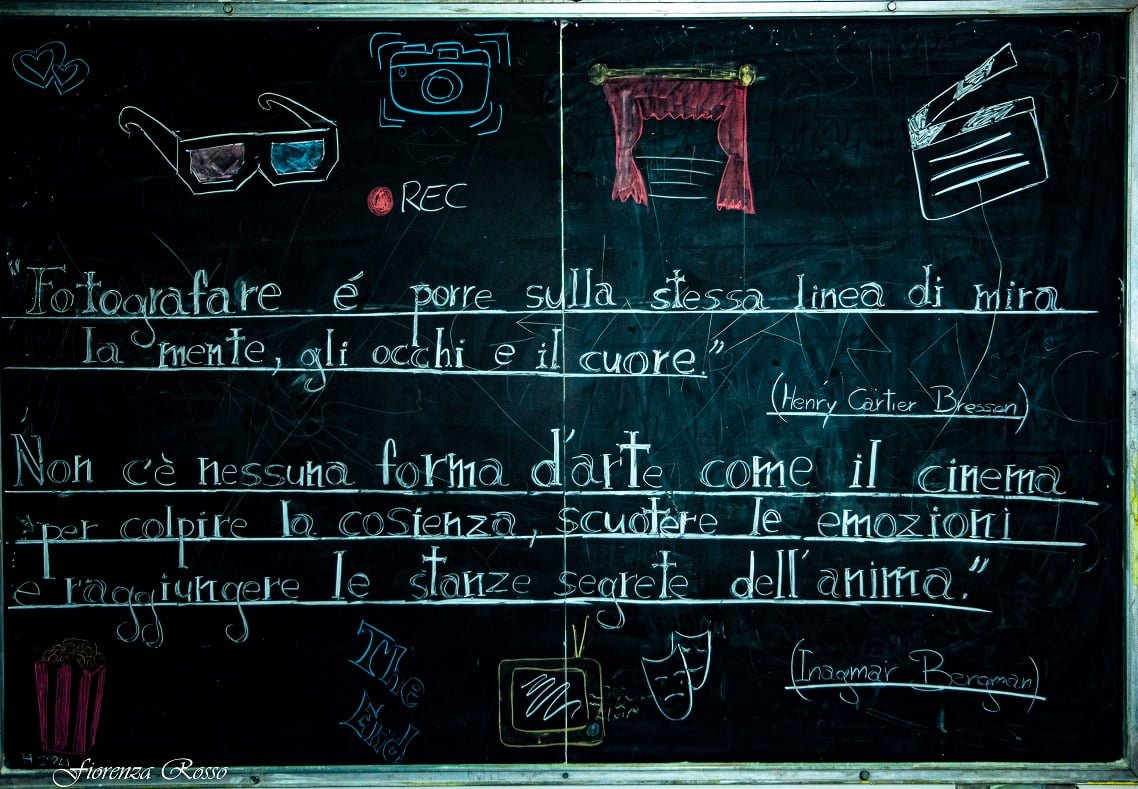 REC
"Fotografare é porre sulla stessa linea di mira
la mente, gli occhi e il cuore."
(Henry Cartier Bresson)
"Non c'è nessuna forma d'arte come il cinema
per colpire la cosienza, scuotere le emozioni
e raggiungere le stanze segrete dell'anima."
(Inagmar Bergman)
The
End!
Fiorenza Rosso